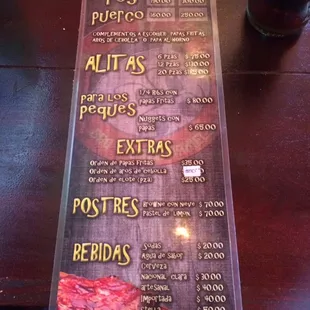 PUERCO 160.00 250.00
COMPLEMENTOS A ESCOGER PAPAS FRITAS
AROS DE CEBOLLA O PAPA AL HORNO
ALITAS
6 PZAS $ 75.00
12 PZAS
20 PZAS
PARA LOS PEQUES
1/4 RBS CON
PAPAS FRITAS $ 80.00
NUGGETS CON
PAPAS $ 65.00
EXTRAS
ORDEN DE PAPAS FRITAS $35.00
ORDEN DE AROS DE CEBOLLA
ORDEN DE ELOTE (PZA) $25.00
POSTRES
BROWNIE CON NIEVE $ 70.00
PASTEL DE LIMON $ 70.00
BEBIDAS
SODAS $ 20.00
AGUA DE SABOR $ 20.00
CERVEZA
NACIONAL CLARA $ 30.00
ARTESANAL $ 40.00
IMPORTADA $ 40.00